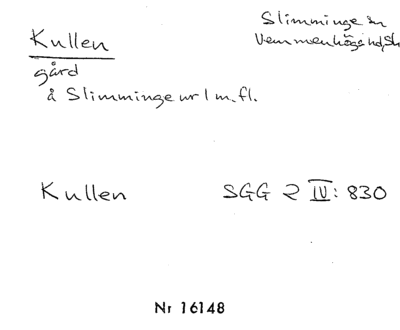 Kullen
Slimminge sn
Vemmenhögs hd, Sk
gård
å Slimminge nr 1 m.fl.
Kullen SGG 2 IV: 830
Nr 16148